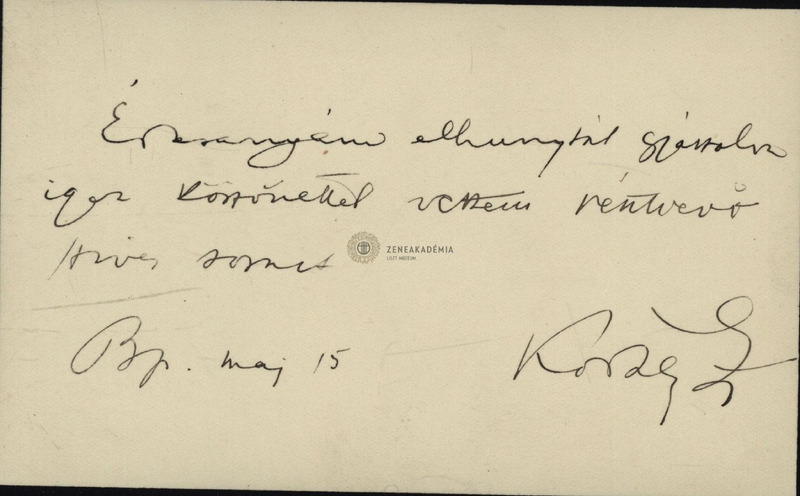 Édesanyám elhunytát gyászolva
igaz köszönettel vettem résztvevő
szíves sorait
ZENEAKADÉMIA
LISZT MÚZEUM
Bp. maj 15
Kodály Z